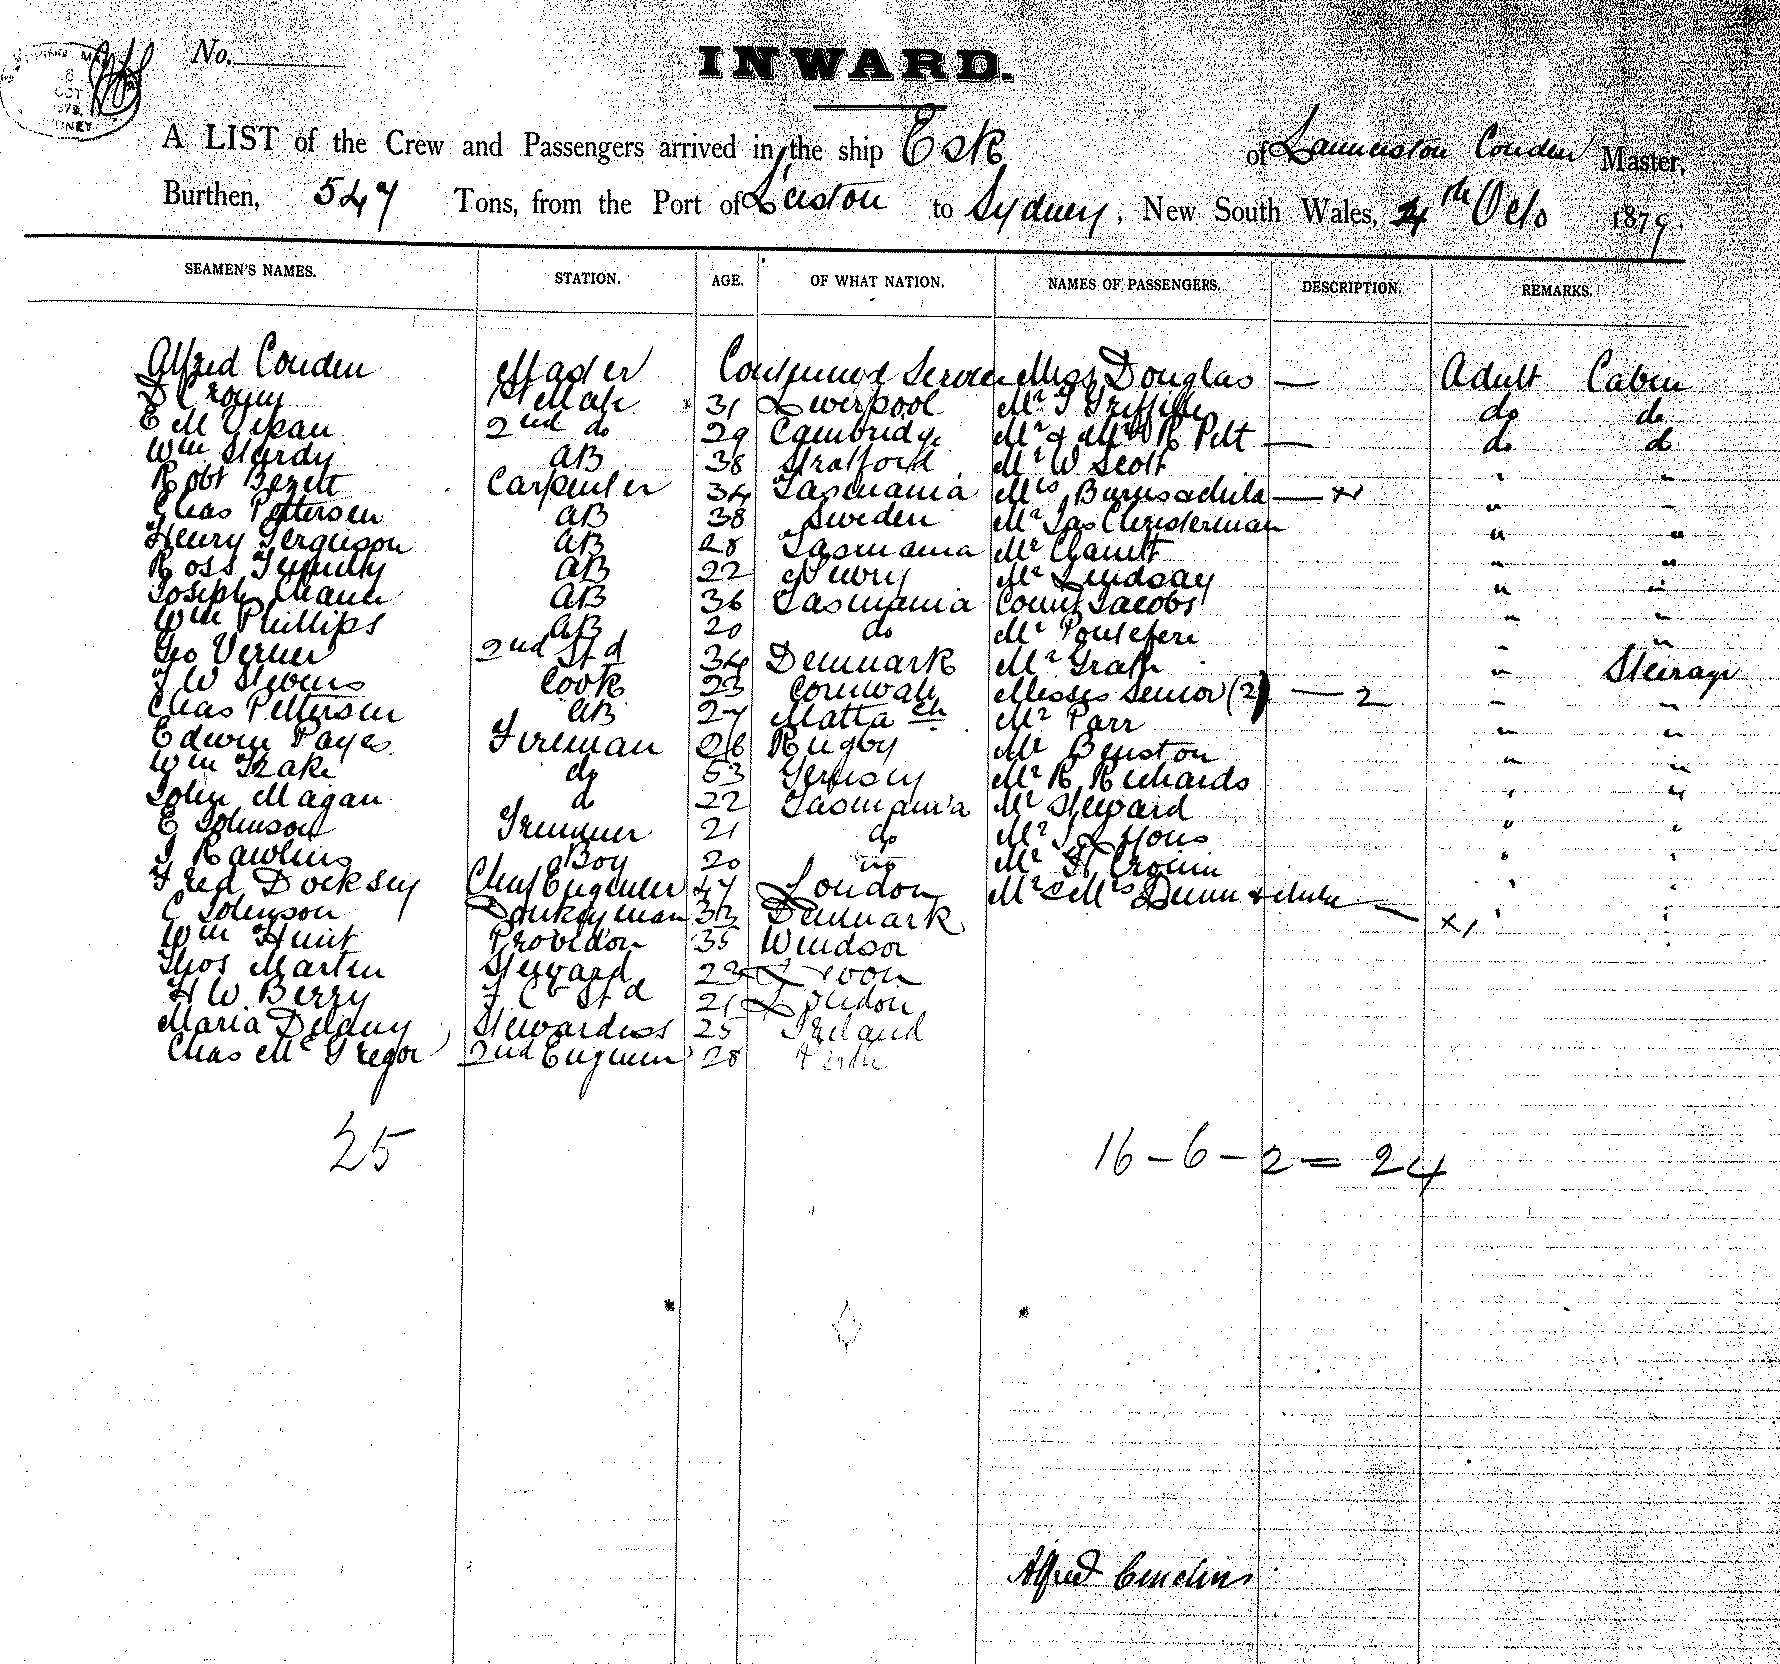 No.
INWARD.
A LIST of the Crew and Passengers arrived in the ship Esk of Launceston Couden Master,
Burthen, 547 Tons, from the Port of L'ceston to Sydney, New South Wales, 4th Octo 1879.
SEAMEN'S NAMES. STATION. AGE. OF WHAT NATION. NAMES OF PASSENGERS. DESCRIPTION. REMARKS.
Alfred Couden Master Continued Service Miss Douglas — Adult Cabin
D Cronin St Mate 31 Liverpool Mr T Griffiths do do
E M 2nd do 29 Cambridge Mr & Mrs R Pitt — do do
Wm Sturdy AB 38 Stratford Mr W Scott " "
Robt Carpenter 34 Tasmania Mrs & child — x1 " "
Chas Pettersen AB 38 Sweden Mr Jas Christerman " "
Henry Ferguson AB 28 Tasmania Mr " "
Ross AB 22 Newry Mr Lindsay " "
Joseph Mann AB 36 Tasmania Count Jacobs " "
Wm Phillips AB 20 do Mr " "
Geo Verner 2nd Std 34 Denmark Mr " Steirage
J W Stevens Cook 23 Cornwall Misses Senior (2) — 2 " "
Chas Pettersen AB 27 Malta Mr Parr " "
Edwin Payes Fireman 26 Rugby Mr Benston " "
Wm do 53 Gernsey Mr R Richards " "
John Magan do 22 Tasmania Mr Steward " "
E Johnson Trimmer 21 do Mr J Lyons " "
J Rawlins Boy 20 do Mr H Cronin " "
Fred Docksey Chief Engineer 47 London Mr & Mrs Dunn & child — x1 " "
C Johnson Donkeyman 33 Denmark
Wm Hunt Providor 35 Windsor
Thos Martin Steward 23
H W Berry F C Std 21 London
Maria Delany Stewardess 25 Ireland
Chas McGregor 2nd Engineer 28 Perth
25 16 – 6 – 2 = 24
Alfred